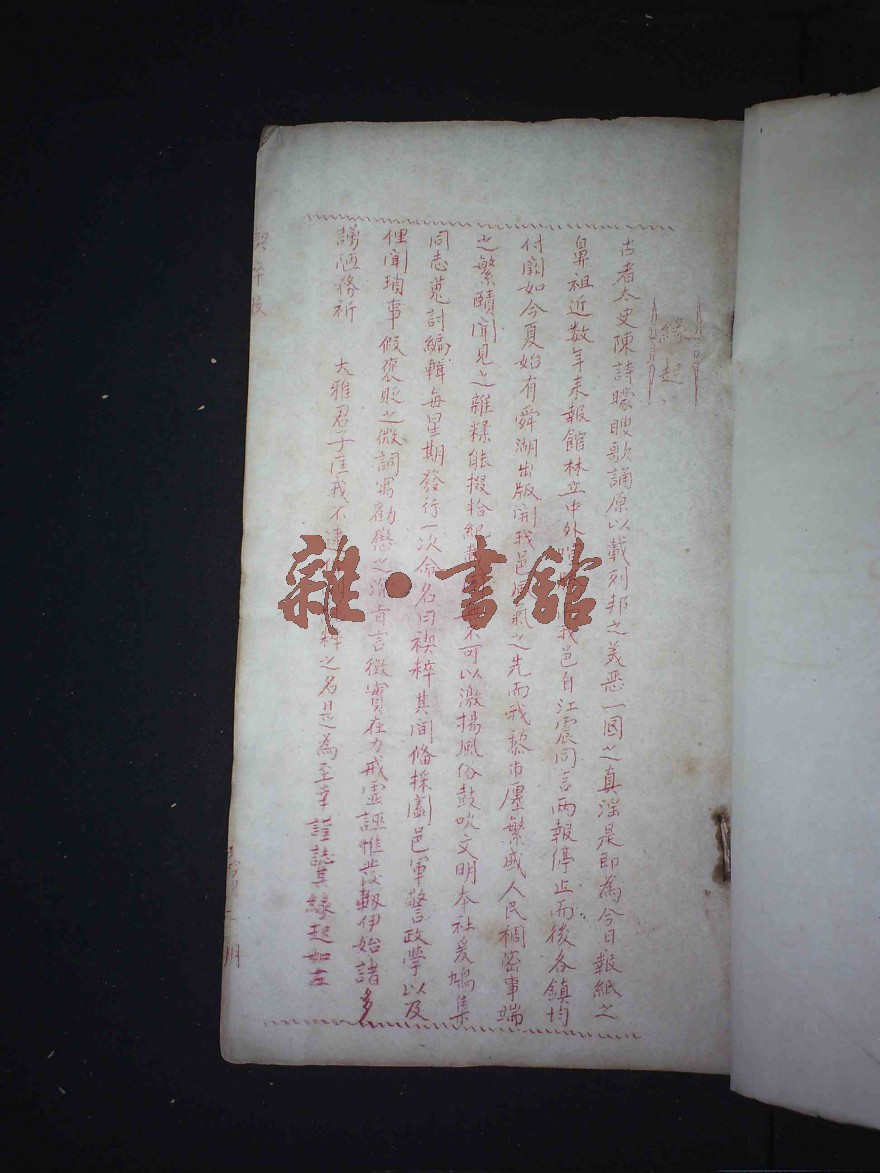 緣起
古者太史陳詩矇瞍歌誦原以載列邦之美惡一國之真淫是即為今日報紙之
鼻祖近数年来報館林立中外 我邑自江震同言兩報停止而後各鎮均
付闕如今夏始有舜湖出版開我邑風氣之先而我黎市廛繁盛人民稠密事端
之繁賾聞見之雜糅能掇拾紀載 不可以激揚風俗鼓吹文明本社爰鳩集
同志蒐討編輯每星期發行一次命名曰禊粹其间偹採闔邑軍警政學以及
俚闻瑣事假褒貶之微詞寓勸懲之 旨言徵實在力戒虛誣惟發軔伊始諸多
謭陋務祈 大雅君子匡我不逮 粹之名是為至幸謹誌其緣起如左
雜·書館